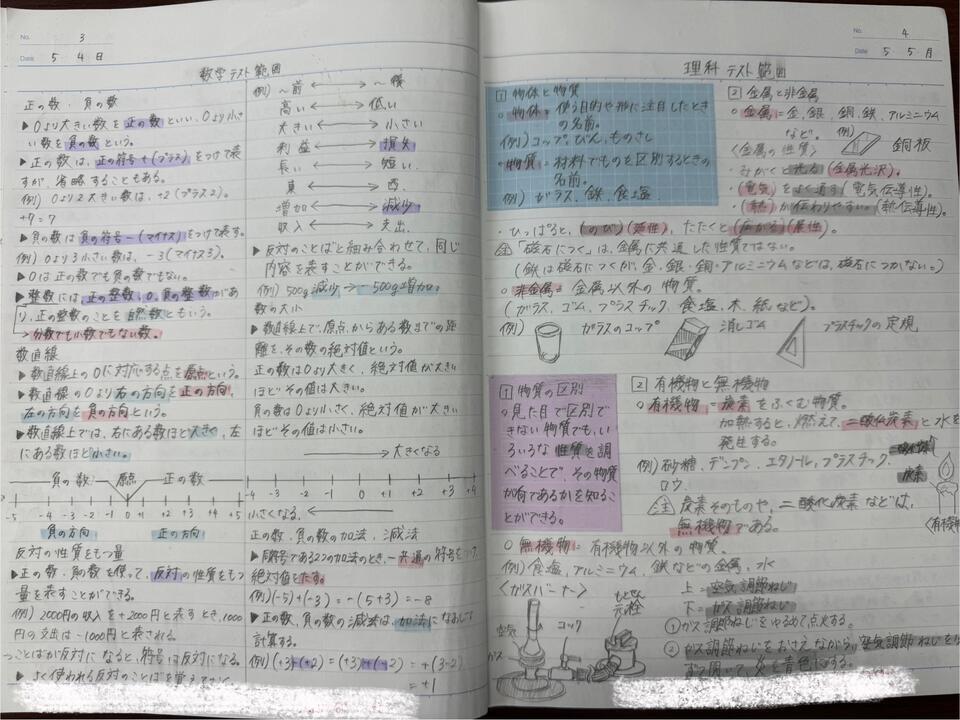 No. 3
Date 5 4 日
数学テスト範囲
正の数・負の数
▶0より大きい数を正の数といい、0より小さ
い数を負の数という。
▶正の数は、正の符号+(プラス)をつけて表
すが、省略することもある。
例)0より2大きい数は、+2(プラス2)。
+7=7
▶負の数は負の符号-(マイナス)をつけて表す。
例)0より3小さい数は、-3(マイナス3)。
▶0は正の数でも負の数でもない。
▶整数には、正の整数、0、負の整数があ
り、正の整数のことを自然数ともいう。
→分数でも小数でもない数。
数直線
▶数直線上の0に対応する点を原点という。
▶数直線の0より右の方向を正の方向、
左の方向を負の方向という。
▶数直線上では、右にある数ほど大きく、左
にある数ほど小さい。
負の数 原点 正の数
-5 -4 -3 -2 -1 0 +1 +2 +3 +4 +5
負の方向 正の方向
反対の性質をもつ量
▶正の数、負の数を使って、反対の性質をもつ
量を表すことができる。
例)2000円の収入を+2000円と表すとき、1000
円の支出は-1000円と表される
ことばが反対になると、符号は反対になる。
▶よく使われる反対のことばを覚えておく
例)~前 ⟷ ~後
高い ⟷ 低い
大きい ⟷ 小さい
利益 ⟷ 損失
長い ⟷ 短い
東 ⟷ 西
増加 ⟷ 減少
収入 ⟷ 支出
▶反対のことばと組み合わせて、同じ
内容を表すことができる。
例)500g減少→-500g増加
数の大小
▶数直線上で、原点からある数までの距
離を、その数の絶対値という。
正の数は0より大きく、絶対値が大きい
ほどその値は大きい。
負の数は0より小さく、絶対値が大きい
ほどその値は小さい。
大きくなる
-4 -3 -2 -1 0 +1 +2 +3 +4
小さくなる
正の数、負の数の加法、減法
▶同符号である2つの加法のとき、共通の符号をつけ、
絶対値をたす。
例)(-5)+(-3)=-(5+3)=-8
▶正の数、負の数の減法は、加法になおして
計算する。
例)(+3)-(+2)=(+3)+(-2)=+(3-2)
=+1
No. 4
Date 5 5 月
理科テスト範囲
1 物体と物質
○物体=使う目的や形に注目したとき
の名前。
例)コップ、びん、ものさし
○物質=材料でものを区別するときの
名前。
例)ガラス、鉄、食塩
2 金属と非金属
○金属=金、銀、銅、鉄、アルミニウム
など。 例) 銅板
〈金属の性質〉
・みがくと光る(金属光沢)。
・(電気)をよく通す(電気伝導性)。
・(熱)が伝わりやすい。(熱伝導性)。
・ひっぱると、(のび)(延性)、たたくと(広がる)(展性)。
注「磁石につく」は、金属に共通した性質ではない。
(鉄は磁石につくが、金・銀・銅・アルミニウムなどは、磁石につかない。)
○非金属=金属以外の物質。
(ガラス、ゴム、プラスチック、食塩、木、紙など)。
例) ガラスのコップ 消しゴム プラスチックの定規
1 物質の区別
○見た目で区別で
きない物質でも、い
ろいろな性質を調
べることで、その物質
が何であるかを知るこ
とができる。
2 有機物と無機物
○有機物=炭素をふくむ物質。
加熱すると、燃えて、二酸化炭素と水を
発生する。
例)砂糖、デンプン、エタノール、プラスチック、
ロウ
二酸化炭素
炭素
〈有機物
注 炭素そのものや、二酸化炭素などは、
無機物である。
○無機物=有機物以外の物質。
例)食塩、アルミニウム、鉄などの金属、水
〈ガスバーナー〉
空気
ガス
コック
もとせん
元栓
上=空気調節ねじ
下=ガス調節ねじ
①ガス調節ねじをゆるめて点火する。
②ガス調節ねじをおさえながら、空気調節ねじを